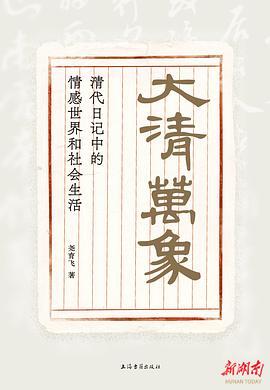 大清萬象
清代日记中的
情感世界和社会生活
尧育飞 著
上海古籍出版社
新湖南
HUNAN TODAY